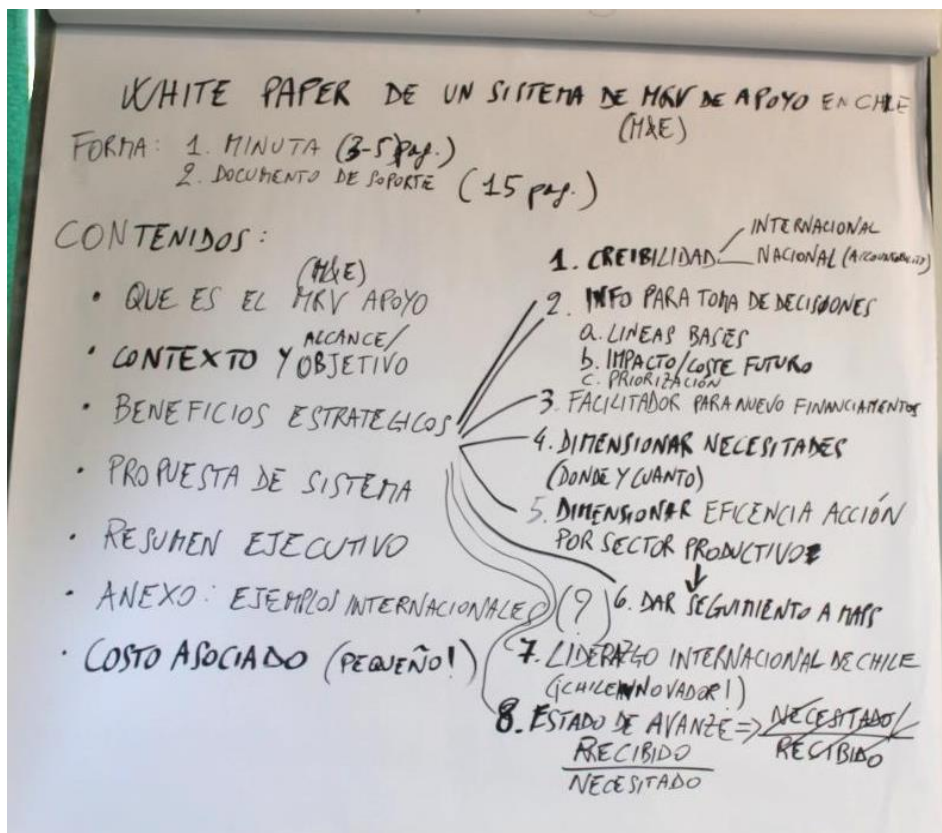 WHITE PAPER DE UN SISTEMA DE MRV DE APOYO EN CHILE
(M&E)
FORMA: 1. MINUTA (3-5 pag.)
2. DOCUMENTO DE SOPORTE (15 pag.)
CONTENIDOS:
(M&E)
• QUE ES EL MRV APOYO
ALCANCE/
• CONTEXTO Y OBJETIVO
• BENEFICIOS ESTRATEGICOS
• PROPUESTA DE SISTEMA
• RESUMEN EJECUTIVO
• ANEXO: EJEMPLOS INTERNACIONALES (?)
• COSTO ASOCIADO (PEQUEÑO!)
INTERNACIONAL
1. CREIBILIDAD NACIONAL (ACCOUNTABILITY)
2. INFO PARA TOMA DE DECISIONES
a. LINEAS BASES
b. IMPACTO/COSTE FUTURO
c. PRIORIZACIÓN
3. FACILITADOR PARA NUEVO FINANCIAMENTOS
4. DIMENSIONAR NECESITADES
(DONDE Y CUANTO)
5. DIMENSIONAR EFICENCIA ACCIÓN
POR SECTOR PRODUCTIVO
↓
6. DAR SEGUIMIENTO A MAPS
7. LIDERAZGO INTERNACIONAL DE CHILE
(¡CHILE INNOVADOR!)
8. ESTADO DE AVANZE => NECESITADO/
RECIBIDO
RECIBIDO
NECESITADO